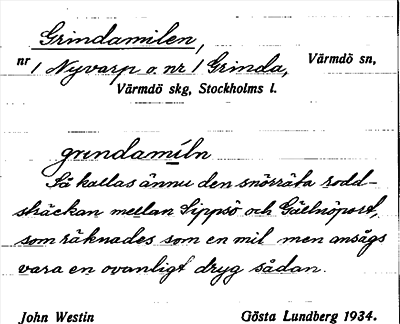 Grindamilen,
nr / Nyvarp o. nr / Grinda, Värmdö sn,
Värmdö skg, Stockholms l.
grindamiln
Så kallas ännu den snörräta rodd-
sträckan mellan Sippsö och Gällnöport,
som räknades som en mil men ansågs
vara en ovanligt dryg sådan.
John Westin Gösta Lundberg 1934.